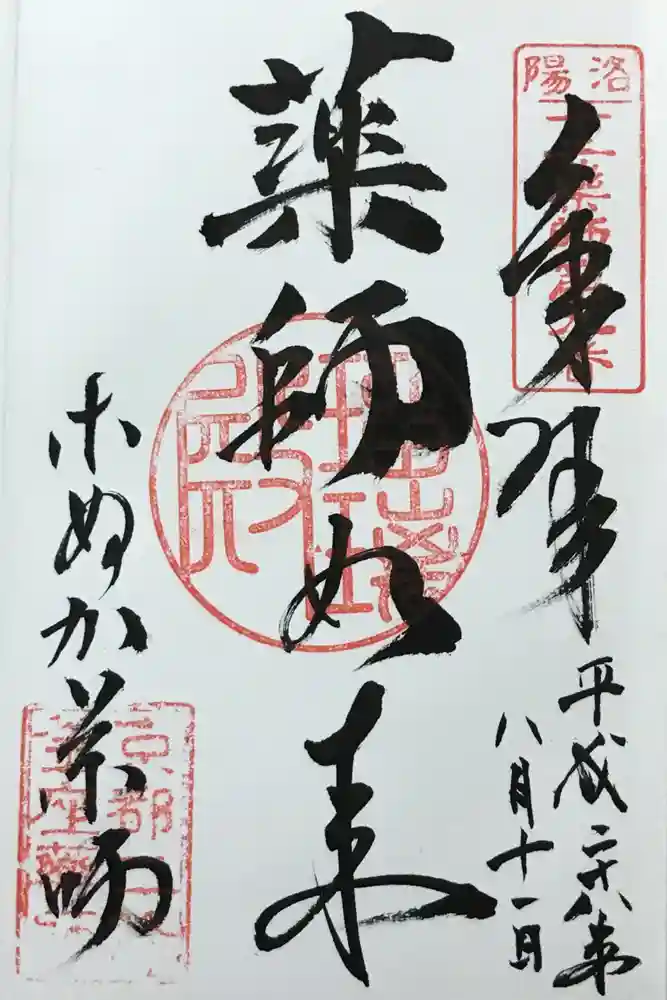 奉拝
平成二十八年
八月十一日
薬師如来
ホぬか薬師
洛陽
十二薬師霊場
瑠璃殿
京都